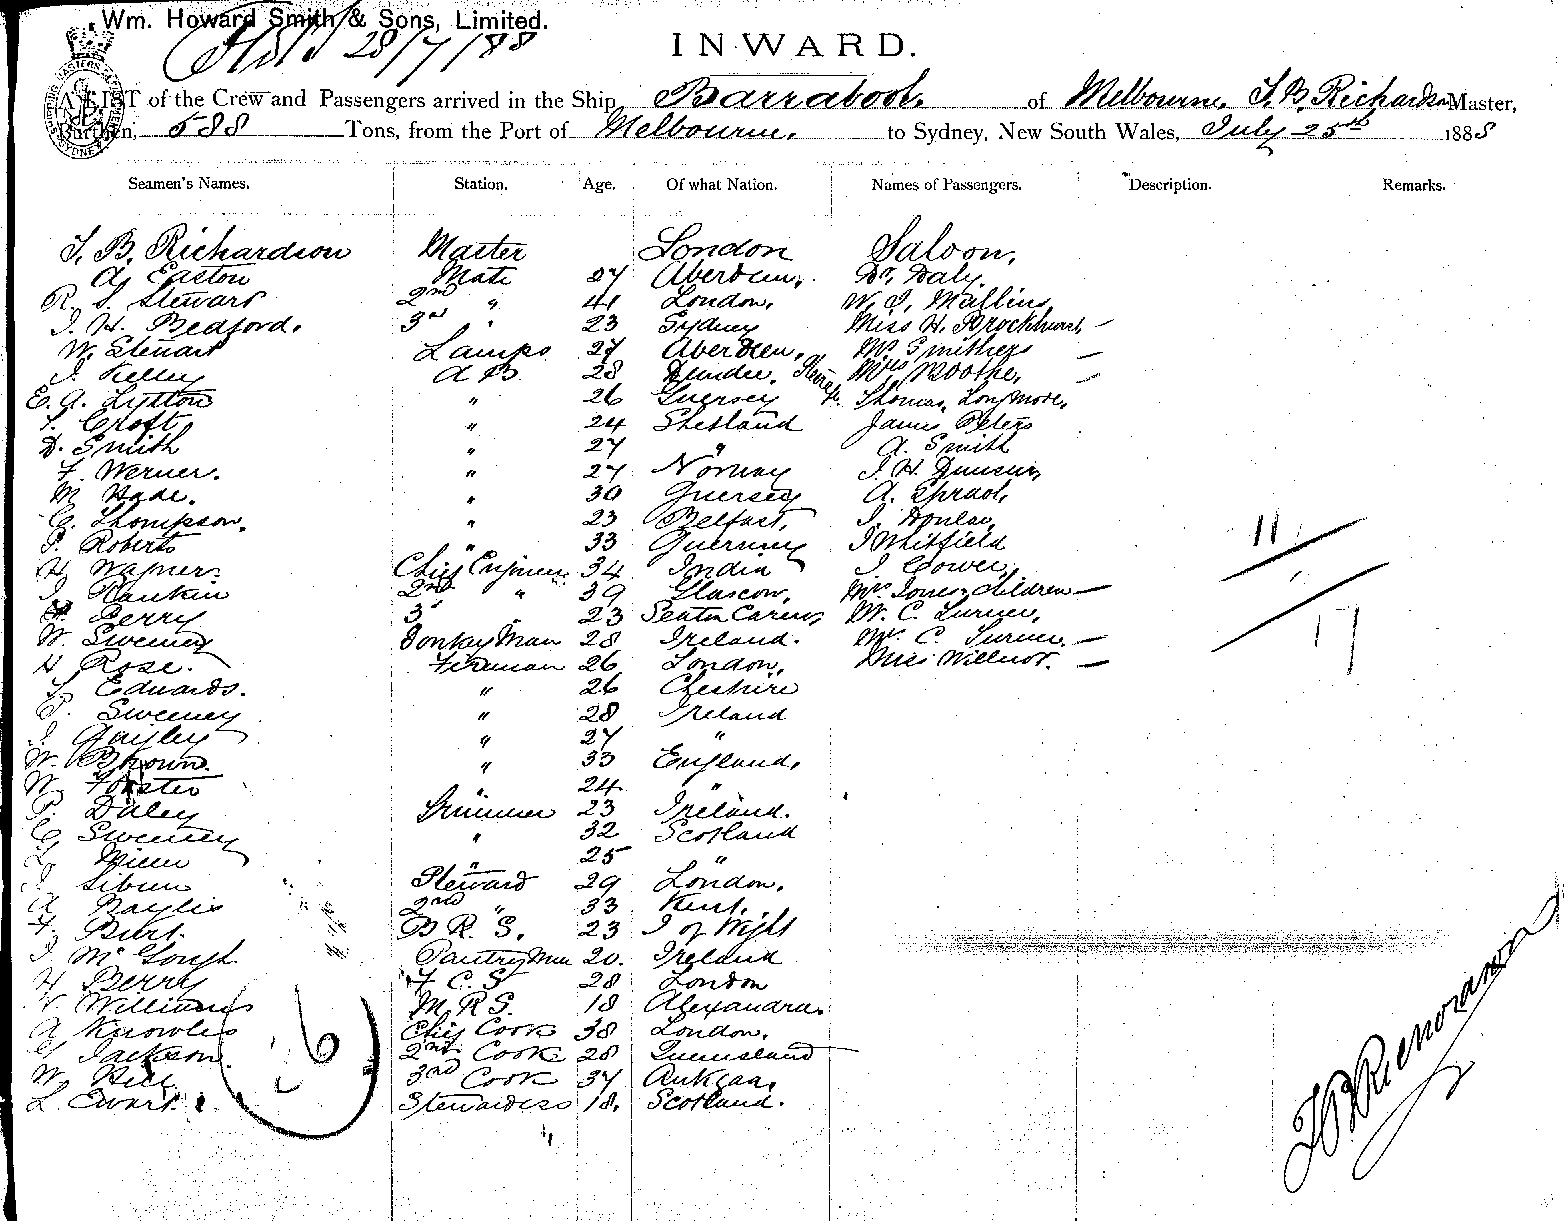 Wm. Howard Smith & Sons, Limited.
28/7/88
INWARD.
A LIST of the Crew and Passengers arrived in the Ship Barrabool of Melbourne, T. B. Richardson Master,
Burthen, 588 Tons, from the Port of Melbourne, to Sydney, New South Wales, July 25th 1888
Seamen's Names. Station. Age. Of what Nation. Names of Passengers. Description. Remarks.
T. B. Richardson Master London Saloon,
A Easton Mate 27 Aberdeen, Dr. Daly,
R. S. Stewart 2nd " 41 London, W. J. Mallins,
J. H. Bedford. 3rd " 23 Sydney Miss H. Brockhurst, —
W. Stewart Lamps 27 Aberdeen, Mrs Smithers —
J. Kelley A B. 28 Dundee, Mrs Boothe, —
E. A. Lytton " 26 Guersey Thomas Longmore,
T. Croft " 24 Shetland James Peters
D. Smith 27 " A. Smith
F. Werner. " 27 Norway J. H. Duncan,
M Hade. " 30 Guersey A.
C. Thompson. " 23 Belfast,
P. Roberts " 33 Guernsey J Whitfield 11
H Wagner. Chief Engineer 34 India J Cower,
J. Rankin 2nd " 39 Glascow, Mrs Jones, children —
Berry 3rd 23 Seaton Carew, W. C. Turner,
W. Sweeney Donkey Man 28 Ireland. Mrs C. Turner. — 17
H Rose. Fireman 26 London, Miss Willmot. —
Edwards. " 26 Cheshire
P. Sweeney " 28 Ireland
J. Quigley " 27 "
W. Brown. " 33 England,
W. Forster " 24 "
P. Daley Trimmer 23 Ireland.
C. Sweeney " 32 Scotland
Miller " 25 "
J. Steward 29 London.
A Baylis 2nd " 33 Kent,
F. Burt. B R. S. 23 I of Wight
J. McGough Pantry Man 20. Ireland
H Berry F. C. S 28 London
Williams M. R S. 18 Alexandra.
A Knowles Chief Cook 38 London.
G Jackson. 2nd Cook 28 Queensland
W. Hill 3rd Cook 37
L. Ewart. Stewardess 18. Scotland.
6
T B Richardson